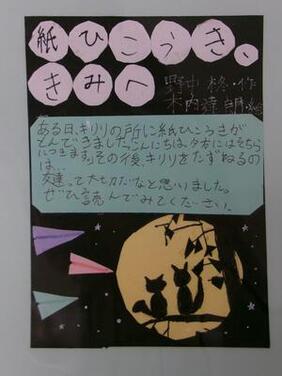 紙ひこうき、
きみへ
野中柊・作
木内達朗・絵
ある日、キリリの所に紙ひこうきが
とんできました。「こんにちは。夕方にはそちら
につきます。」その後、キリリをたずねるの
は、
友達って大切だなと思いました。
ぜひ読んでみてください。